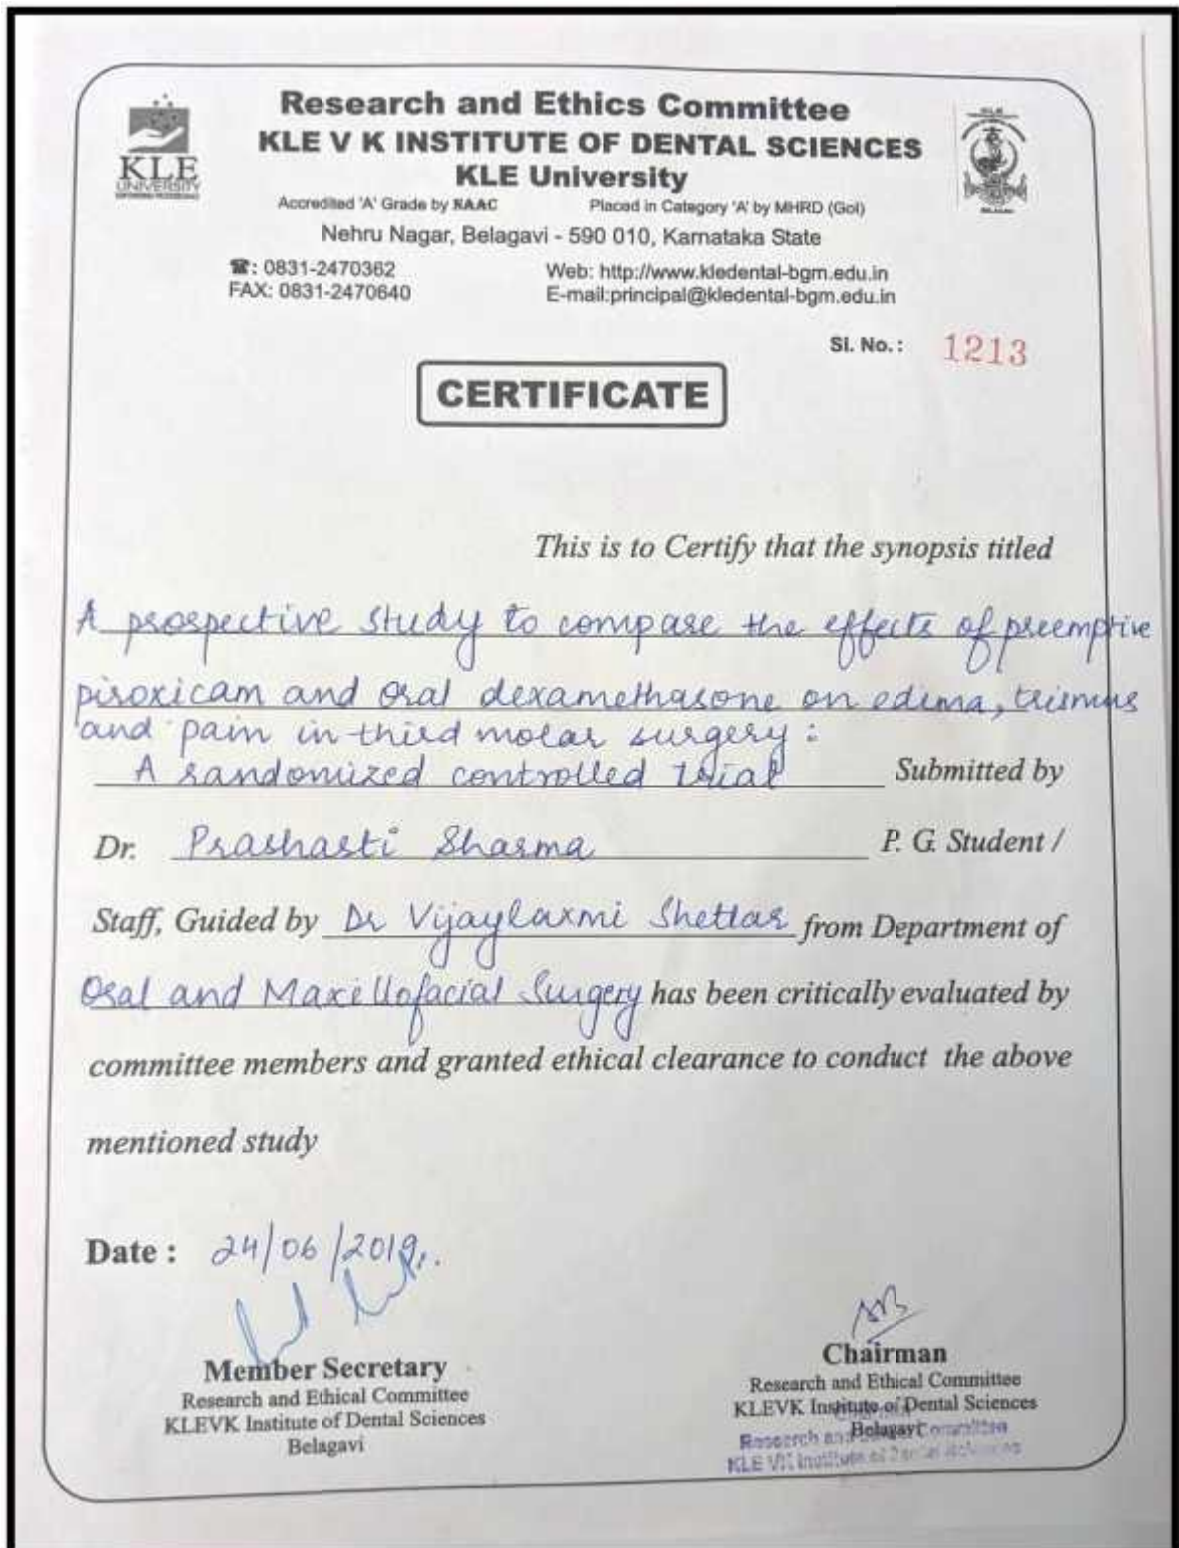 Research and Ethics Committee
KLE V K INSTITUTE OF DENTAL SCIENCES
KLE University
KLE
UNIVERSITY
Accredited 'A' Grade by NAAC Placed in Category 'A' by MHRD (GoI)
Nehru Nagar, Belagavi - 590 010, Karnataka State
☎: 0831-2470362 Web: http://www.kledental-bgm.edu.in
FAX: 0831-2470640 E-mail:principal@kledental-bgm.edu.in
Sl. No.: 1213
CERTIFICATE
This is to Certify that the synopsis titled
A prospective study to compare the effects of preemptive
piroxicam and oral dexamethasone on edema, trismus
and pain in third molar surgery:
A randomized controlled trial Submitted by
Dr. Prashasti Sharma P. G. Student /
Staff, Guided by Dr Vijaylaxmi Shettar from Department of
Oral and Maxillofacial Surgery has been critically evaluated by
committee members and granted ethical clearance to conduct the above
mentioned study
Date : 24/06/2019
Member Secretary
Research and Ethical Committee
KLEVK Institute of Dental Sciences
Belagavi
Chairman
Research and Ethical Committee
KLEVK Institute of Dental Sciences
Belagavi
Research and Committee
KLE VK Institute of Dental Sciences